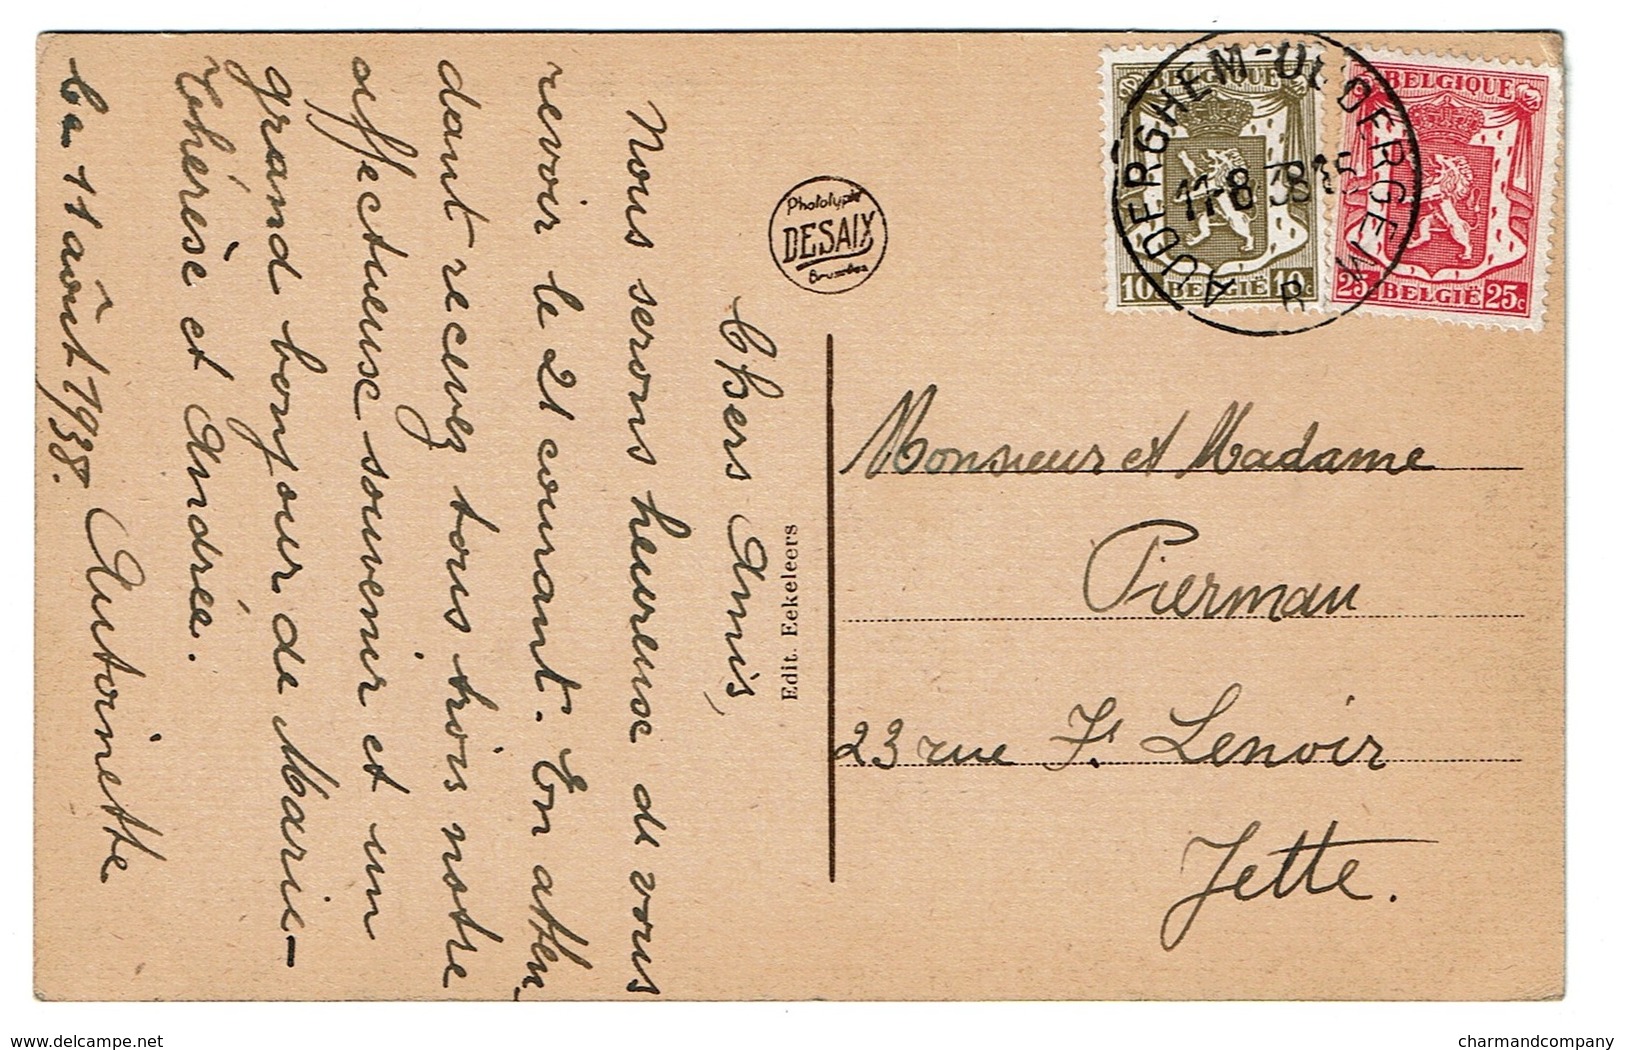 Chers Amis,
Nous serons heureuse de vous
revoir le 21 courant. En atten
dant recevez tous trois notre
affectueuse souvenir et un
grand bonjour de Marie-
Thérèse et Andrée.
Antoinette
Le 11 août 1938.
Edit. Eekeleers
Phototypie
DESAIX
Bruxelles
BELGIQUE
10c BELGIË 10c
BELGIQUE
25c BELGIË 25c
AUDERGHEM-OUDERGEM
11-8 38 15
B
Monsieur et Madame
Pierman
23 rue Fs Lenoir
Jette.
www.delcampe.net
charmandcompany